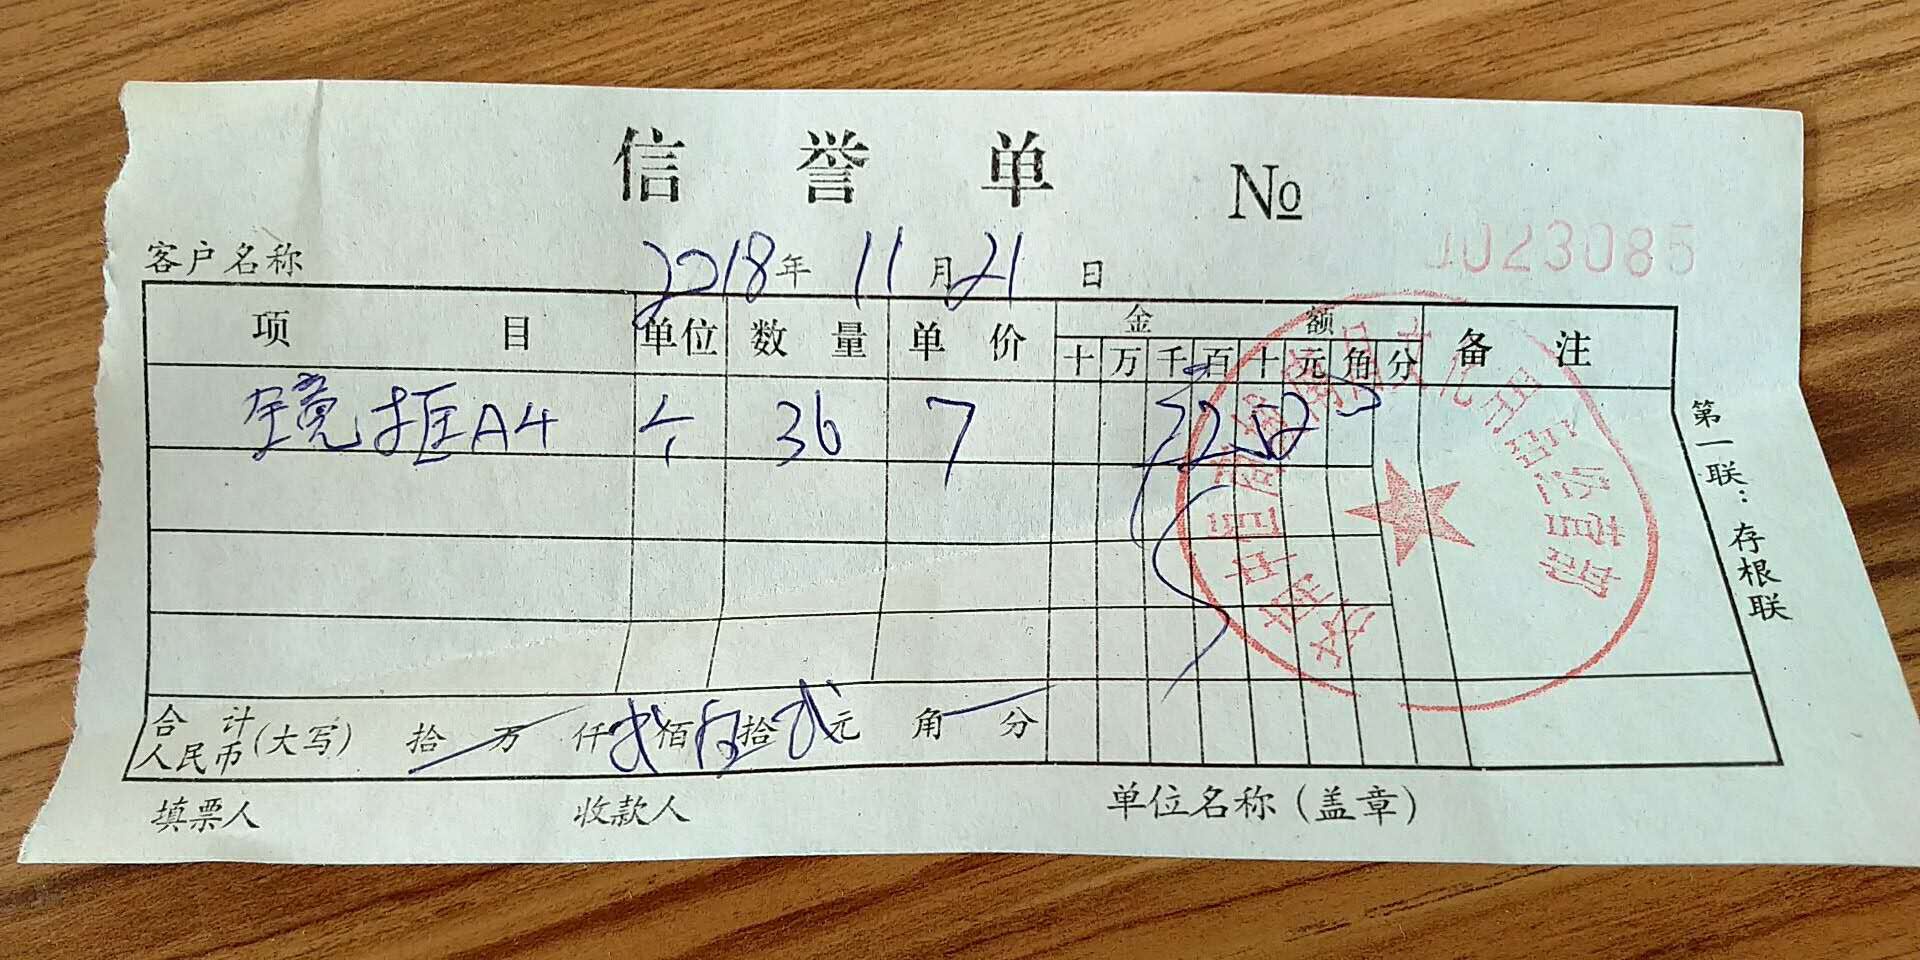 信誉单 №
0023085
客户名称 2018年 11月 21日
项目 单位 数量 单价 金额 备注
十 万 千 百 十 元 角 分
镜框A4 个 36 7
第一联：存根联
合计人民币(大写) 拾 万 仟 贰佰 伍拾 贰元 角 分
填票人 收款人 单位名称（盖章）